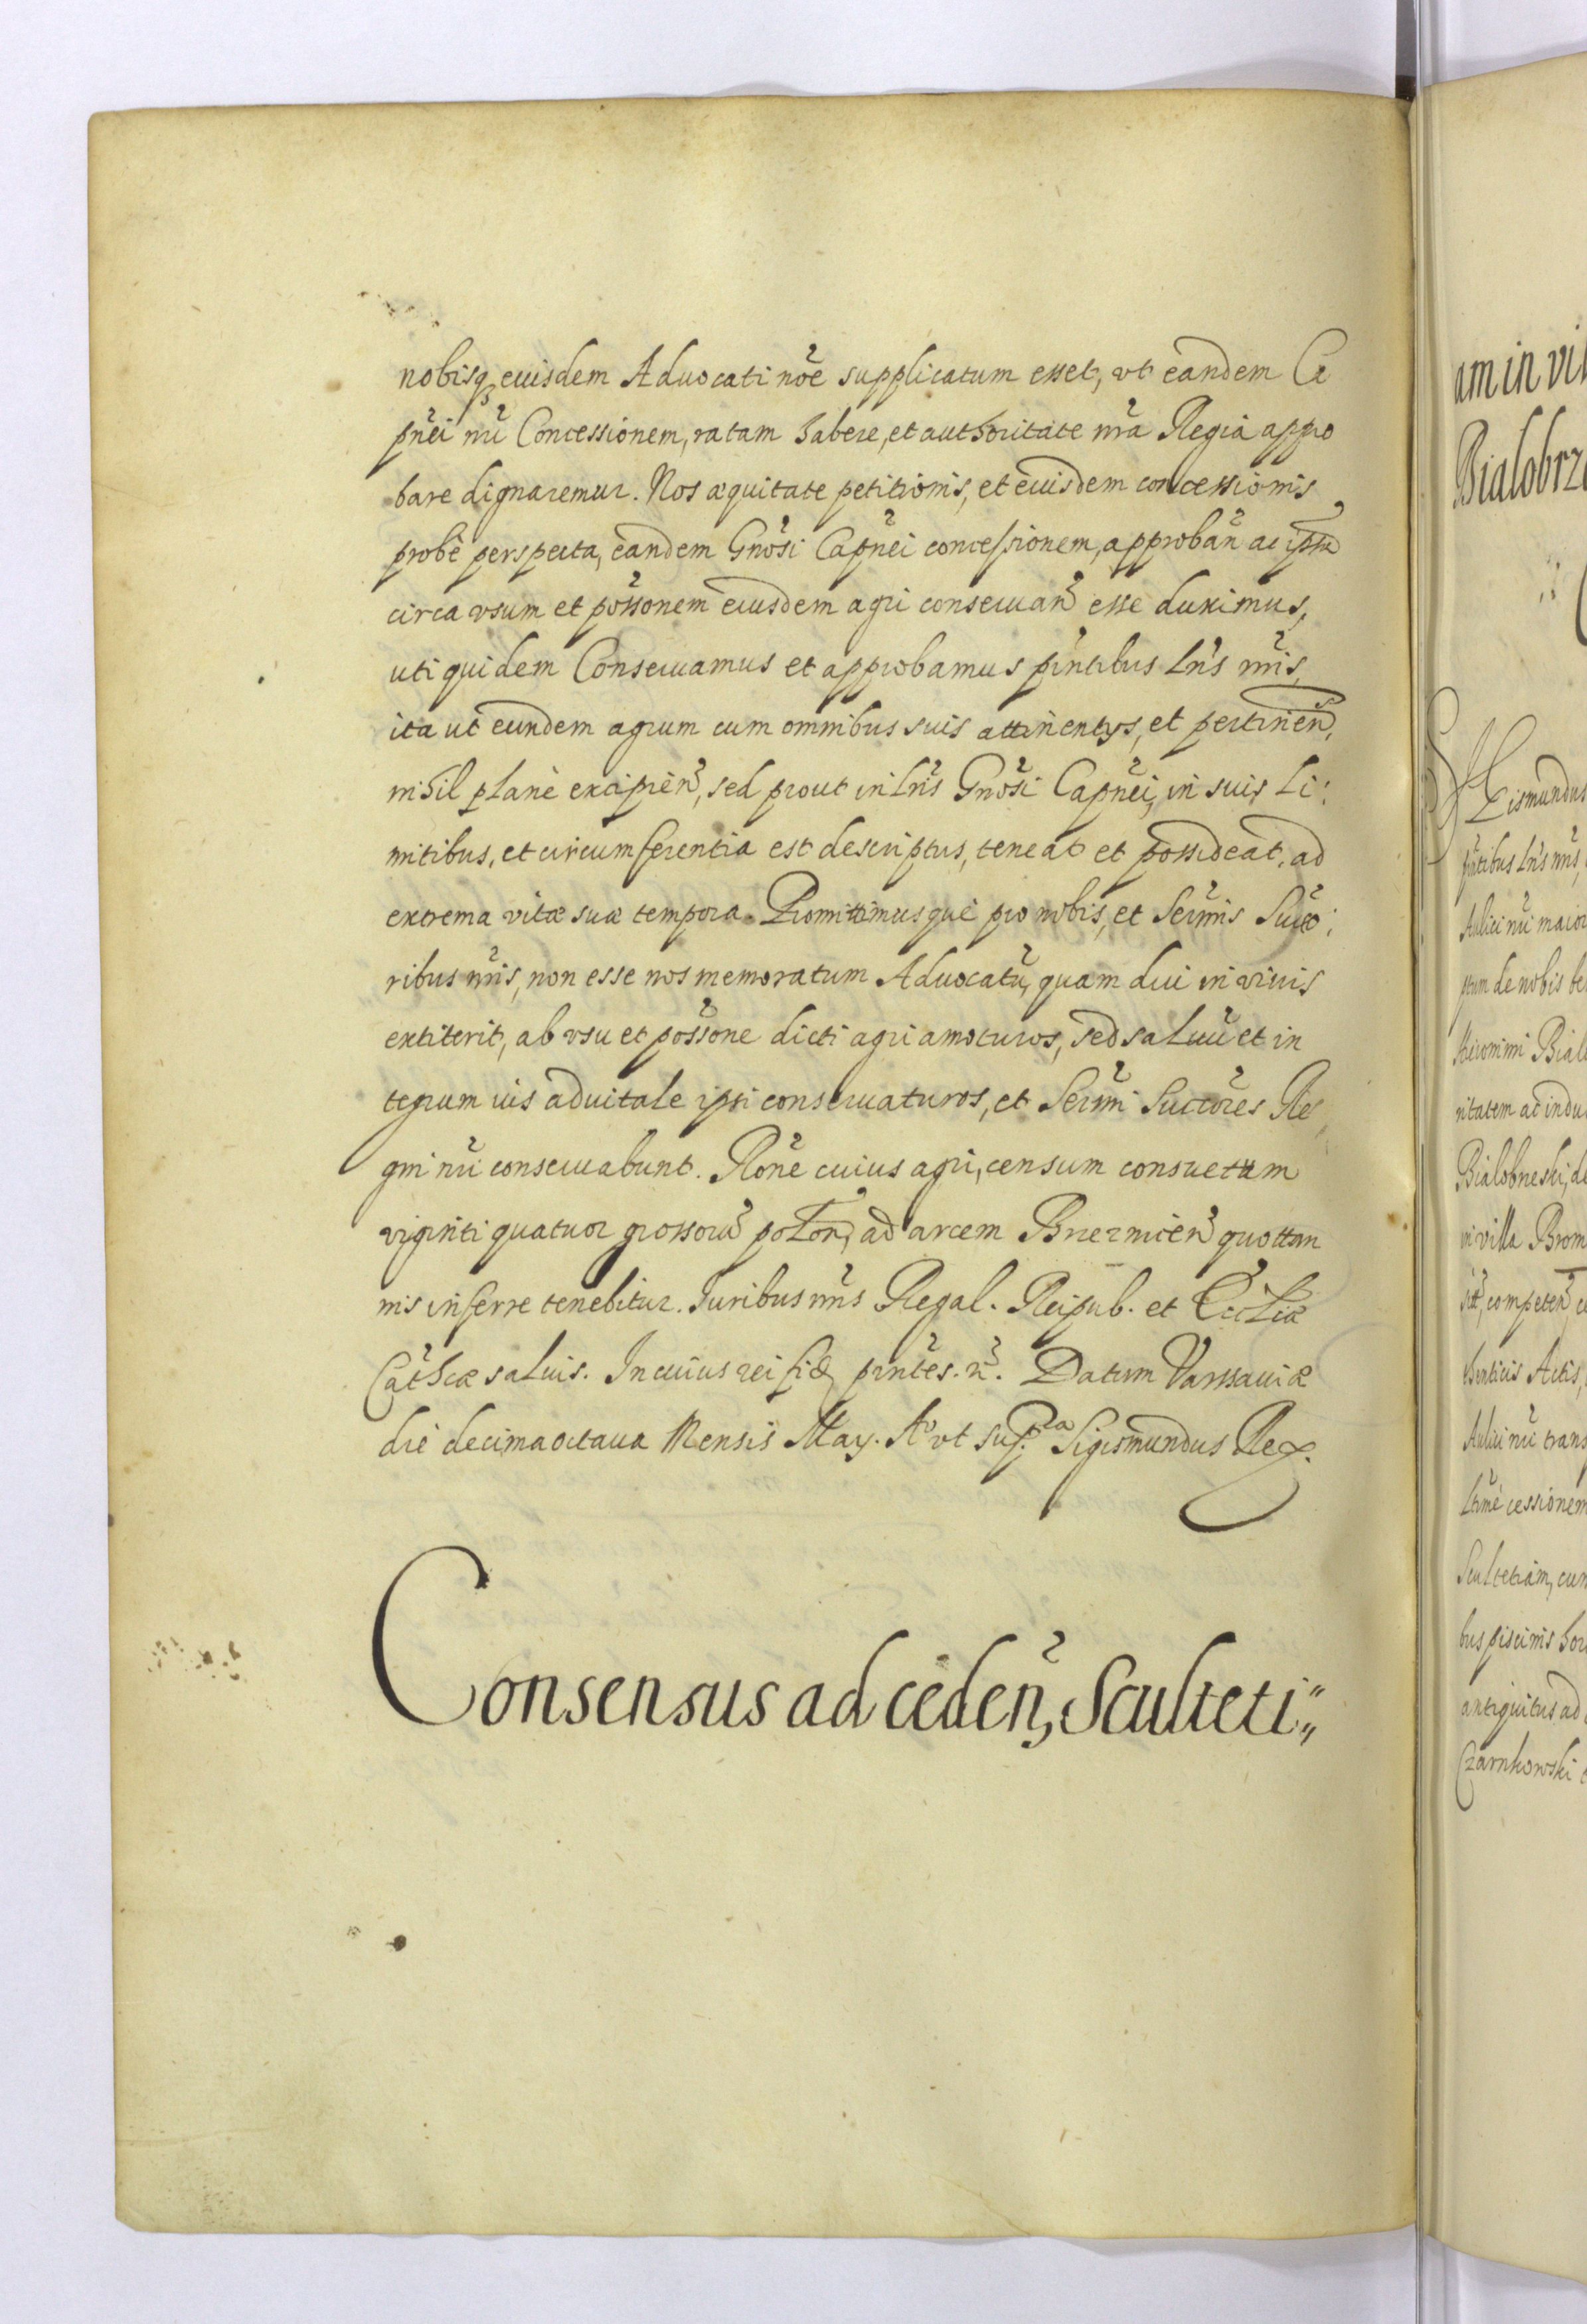 nobisq₃ euisdem Aduocati nõe supplicatum esset, vt eandem Ca
pñei nũ Concessionem, ratam habere, et authoritate nrã Regia appro
bare dignaremur. Nos æquitate petitionis, et euisdem concessionis
probè perspecta, eandem Gnõsi Capñei concessionem, approbañ ac ipsũ
circa vsum et possõnem eiusdem agri conseruañ esse duximus,
uti quidem Conseruamus et approbamus pñtibus Lrĩs nrĩs,
ita ut eundem agrum cum omnibus suis attinentys, et pertineñ,
nihil planè excipieñ, sed prout in Lrĩs Gnõsi Capñei, in suis Li:
mitibus, et circumferentia est descriptus, teneat et possideat, ad
extrema vitæ suæ tempora. Promittimusque pro nobis, et Serm̃is Sucõ:
ribus nrĩs, non esse nos memoratum Aduocatũ, quam diu in viuis
extiterit, ab vsu et possõne dicti agri amoturos, sed saluũ et in
tegrum ius aduitale ipsi conseruaturos, et Serm̃i Succõres Re,
gni nrĩ conseruabunt. Rõne cuius agri, censum consuetum
viginti quatuor grossorũ poloñ, ad arcem Brzeznicen̄ quottan
nis inferre tenebitur. Iuribus nrĩs Regal. Reipub. et Eccliæ
Cathcæ saluis. In cuius rei fidẽ pñtes. ñ. Datum Varssauiæ
die decimaoctaua Mensis May. Aº vt supra Sigismundus Rex.
Consensus ad cedeñ, Sculteti"
am in vil
Bialobrze
pñtibus Lrĩs nrĩs,
Aulici nrĩ maior
ptum de nobis be
Hieronimi Bial
ritatem ac indu
Bialobrzeski, de
in villa Brom
competeñ, c
thenticis Actis,
Aulici nrĩ trans
cessionem
Scultetiam, cum
bus piscinis hor
antiquitus ad
Czarnkowski